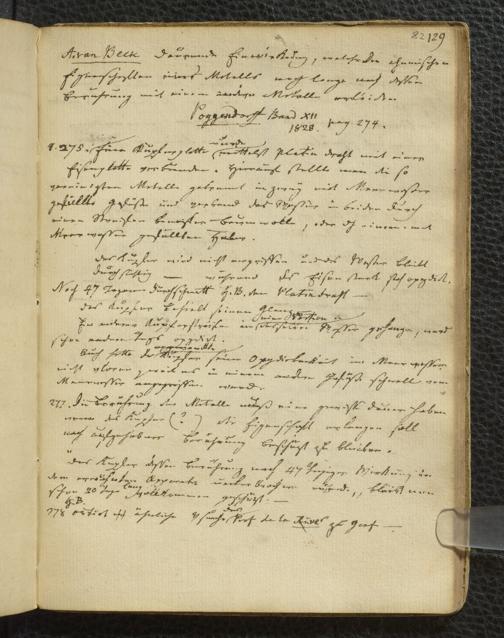 82 129
A. van Beek dauernde Einwirkung, welche die chemischen
Eigenschaften eines Metalls noch lange nach dessen
Berührung mit einem andern Metalle erleiden
Poggendorff Band XII
1828. pag 274.
S. 275. Eine Kupferplatte wurde mittelst Platin draht mit einer
Eisenplatte verbunden. Hierauf stellte man die so
vereinigten Metalle getrennt in zwey mit Meerwasser
gefüllte Gefässe und verband das Wasser in beiden durch
einen Streifen Baumwolle, oder einen mit
Meerwasser gefüllten Heber.
das Kupfer wird nicht angegriffen und das Wasser bleibt
durchsichtig — während das Eisen stark sich oxydirt.
Nach 47 Tagen durchschnitt H. B. den Platindraht —
das Kupfer behielt seinen Glanz
Ein anderer Kupferstreifen in Wasser gehangen, ward
schon andern Tags oxydirt.
Auch hatte das Kupfer seine Oxydirbarkeit im Meerwasser
nicht verloren in einem andern Gefäße schnell vom
Meerwasser angegriffen wurde.
277. Die Berührung der Metalle muß eine gewisse Dauer haben
wenn das Kupfer (?) die Eigenschaft erlangen soll
nach aufgehobener Berührung beschützt zu bleiben.
das Kupfer dessen Berührung nach 47 tägiger Wirkung in
dem Apparate unterbrochen wurde, bleibt nun
schon 20 Tage lang vollkommen geschützt. —
H. B.
278 ähnliche Versuche des Prof de la Rive zu Genf —